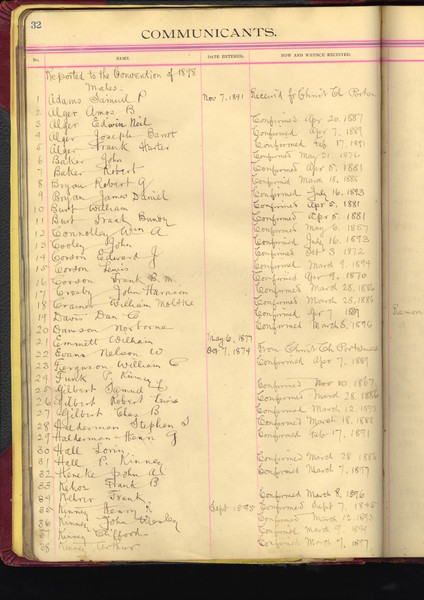 32
COMMUNICANTS.
No. NAME. DATE ENTERED. HOW AND WHENCE RECEIVED.
Reported to the Convention of 1898
Males.
1 Adams Samuel P Nov 7, 1891 Receiv'd fr Christ Ch
2 Alger Amos B
3 Alger Edwin Neil Confirmed Apr 20. 1887
4 Alger Joseph Barrot Confirmed Apr 7, 1889
5 Alger Frank Harter Confirmed Feb 17, 1891
6 Baker John Confirmed May 21, 1876
7 Baker Robert Confirmed Apr 5, 1881
8 Bryan Robert G Confirmed March 18, 1888
9 Bryan James Daniel Confirmed July 16, 1893
10 Burt William Confirmed Apr 5, 1881
11 Burt Frank Bundy Confirmed Apr 5. 1881
12 Connolley Wm A Confirmed May 6, 1857
13 Cooley John Confirmed July 16, 1893
14 Corson Edward J Confirmed Oct 3 1872
15 Corson Lewis Confirmed March 9, 1894
16 Corson Frank B. M. Confirmed Apr 9, 1870
17 Crosby John Harrison Confirmed March 28, 1886
18 Cramer William Moltke Confirmed March 28, 1886
19 Davis Dan C Confirmed Apr 7 1889
20 Dawson Norborne Confirmed March 8, 1896
21 Emmett William May 6, 1877
22 Evans Nelson W Oct 7, 1874 From Christ Ch Portsmouth
23 Ferguson William C Confirmed Apr 7, 1889
24 Funk P. Kinney
25 Gilbert Samuel L Confirmed Nov 10, 1867
26 Gilbert Robert Confirmed March 28, 1886
27 Gilbert Chas B Confirmed March 12, 1893
28 Halderman Stephen S Confirmed March 18, 1888
29 Halderman Henry G Confirmed Feb 17, 1891
30 Hall Lorin
31 Hall P. Kinney Confirmed March 28 1886
32 John A Confirmed March 7, 1897
33 Kehoe Frank B
34 Kehrer Frank Confirmed March 8, 1896
35 Kinney Henry R Sept 1845 Confirmed Sept 7, 1845
36 Kinney John Confirmed March 12, 1893
37 Kinney Clifford Confirmed March 9, 1894
38 Kinney Arthur Confirmed March 7, 1897